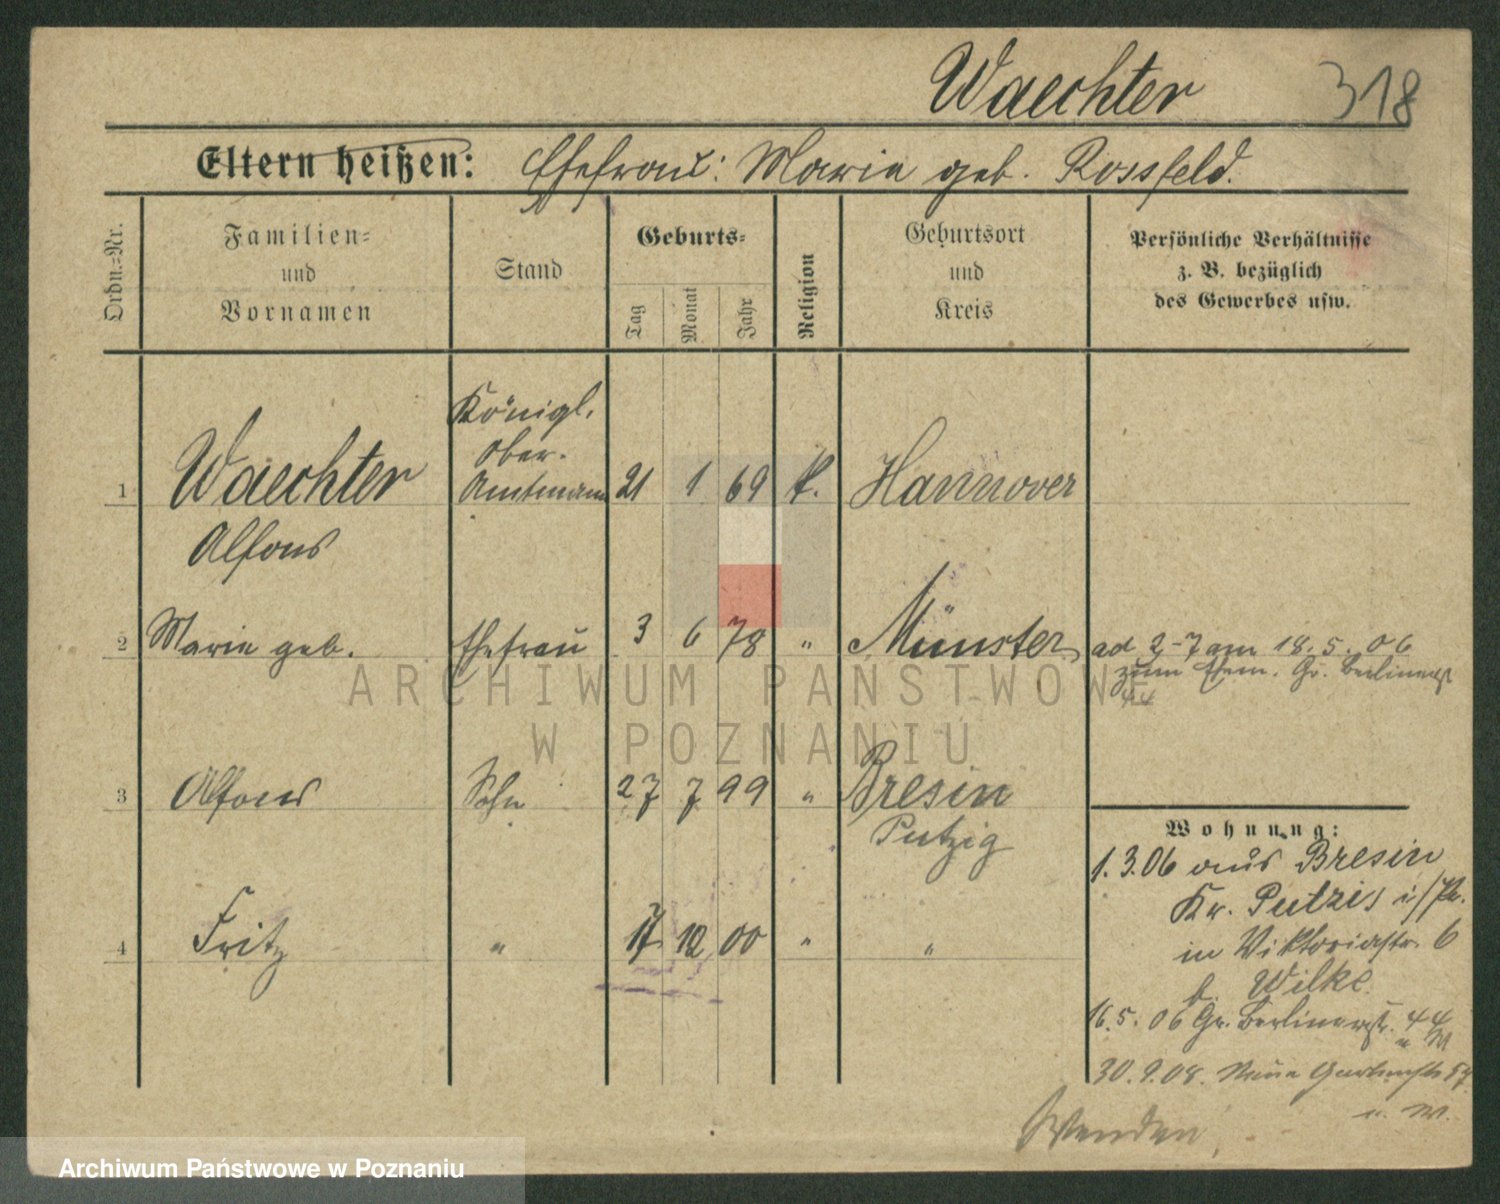 Waechter 318
Eltern heißen: Ehefrau: Marie geb. Rossfeld.
Ordn.-Nr.
Familien-
und
Vornamen
Stand
Geburts-
Tag
Monat
Jahr
Religion
Geburtsort
und
Kreis
Persönliche Verhältnisse
z. B. bezüglich
des Gewerbes usw.
Königl.
Ober-
1 Waechter Amtmann 21 1 69 k. Hannover
Alfons
2 Marie geb. Ehefrau 3 6 78 " Münster ad 2-7 am 18.5.06
zum Ehem. Gr. Berlinerstr
44
3 Alfons Sohn 27 7 99 " Bresin
Putzig
4 Fritz " 17 12 00 " "
Wohnung:
1.3.06 aus Bresin
Kr. Putzig i/Pr.
in Viktoriastr. 6
b. Wilke
16.5.06 Gr. Berlinerstr. 44
30.9.08. Neue Gartenstr
u. W.
Wenden
ARCHIWUM PAŃSTWOWE
W POZNANIU
Archiwum Państwowe w Poznaniu